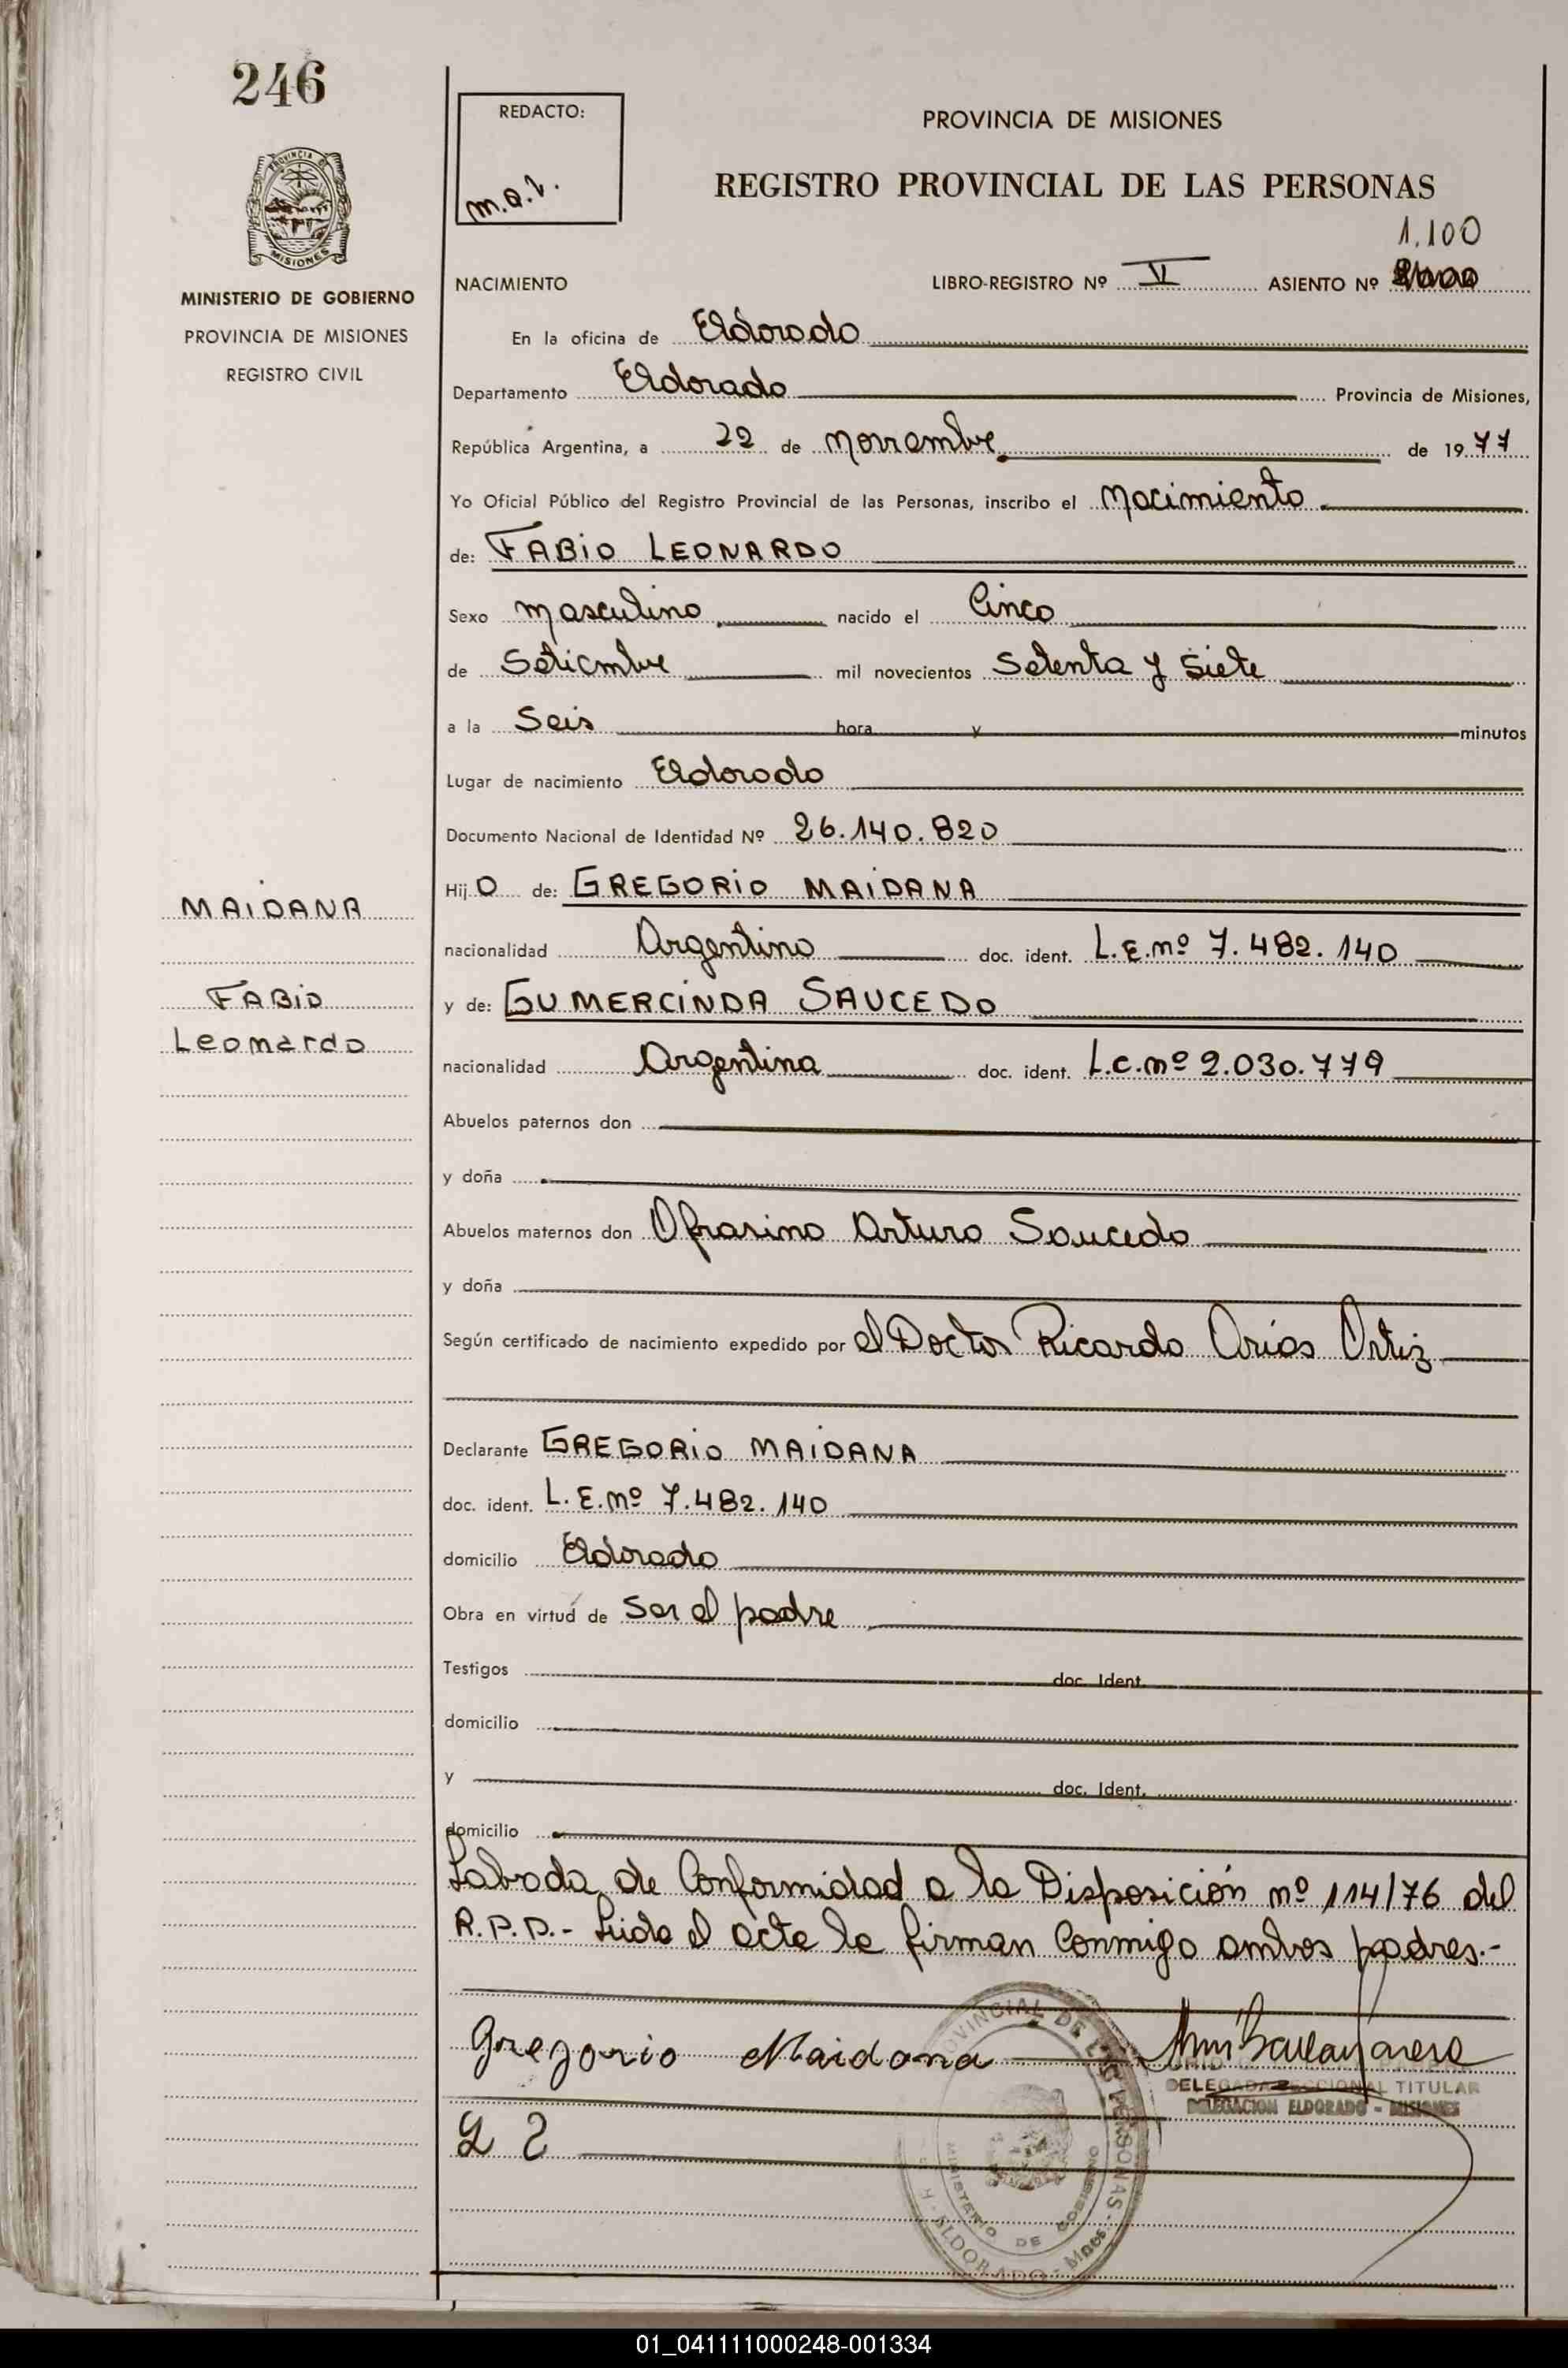 246
REDACTO:
PROVINCIA DE MISIONES
REGISTRO PROVINCIAL DE LAS PERSONAS
PROVINCIA DE
MISIONES
MINISTERIO DE GOBIERNO
PROVINCIA DE MISIONES
REGISTRO CIVIL
1.100
NACIMIENTO LIBRO-REGISTRO Nº VI ASIENTO Nº
En la oficina de Eldorado
Departamento Eldorado Provincia de Misiones,
República Argentina, a 22 de noviembre de 1977
Yo Oficial Público del Registro Provincial de las Personas, inscribo el Nacimiento
de: FABIO LEONARDO
Sexo masculino nacido el Cinco
de Setiembre mil novecientos Setenta y Siete
a la Seis hora y minutos
Lugar de nacimiento Eldorado
Documento Nacional de Identidad Nº 26.140.820
Hij O de: GREGORIO MAIDANA
MAIDANA
nacionalidad Argentino doc. ident. L.E.nº 7.482.140
FABIO
y de: GUMERCINDA SAUCEDO
Leonardo
nacionalidad Argentina doc. ident. L.C.nº 2.030.779
Abuelos paternos don
y doña
Abuelos maternos don Ofrasino Arturo Saucedo
y doña
Según certificado de nacimiento expedido por el Doctor Ricardo Arias Ortiz
Declarante GREGORIO MAIDANA
doc. ident. L.E.nº 7.482.140
domicilio Eldorado
Obra en virtud de Ser el padre
Testigos doc. Ident.
domicilio
y doc. Ident.
domicilio
Labrada de Conformidad a la Disposición nº 114/76 del
R.P.P.- Leida el acta la firman Conmigo ambos padres.-
Gregorio Maidana
DELEGADA SECCIONAL TITULAR
DELEGACION ELDORADO - MISIONES
PROVINCIAL DE LAS PERSONAS
MINISTERIO DE GOBIERNO
ELDORADO - Mnes.
01_041111000248-001334